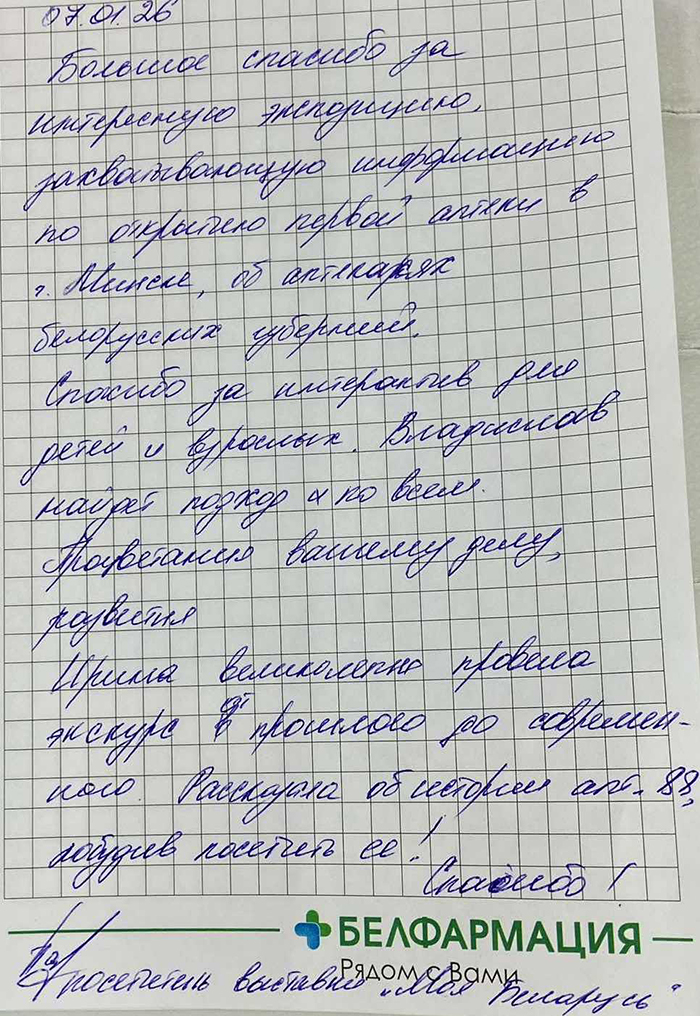 07.01.26
Большое спасибо за
интересную экспозицию,
захватывающую информацию
по открытию первой аптеки в
г. Минске, об аптекарях
белорусских губерний.
Спасибо за интерактив для
детей и взрослых. Владислав
найдет подход ко всем.
Процветания вашему делу,
развития
Ирина великолепно провела
экскурс от прошлого до современ-
ного. Рассказала об истории апт. 88,
побудив посетить ее!
Спасибо!
БЕЛФАРМАЦИЯ
Рядом с Вами
посетитель выставки "Моя Беларусь"